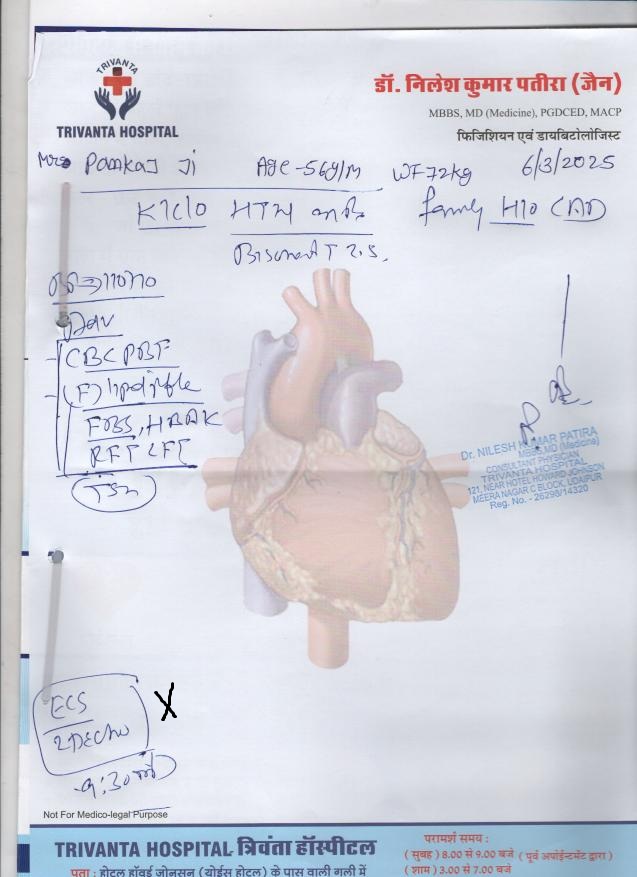 TRIVANTA
TRIVANTA HOSPITAL
डॉ. निलेश कुमार पतीरा (जैन)
MBBS, MD (Medicine), PGDCED, MACP
फिजिशियन एवं डायबिटोलोजिस्ट
Pankaj Ji Age-56y/m WT 72kg 6/3/2025
K/C/O HTN family H/O CAD
T 2.5
BP→110/70
CBC PBF
(F) lipid
FBS, HBA1C
RFT LFT
TSH
Dr. NILESH KUMAR PATIRA
MBBS MD (Medicine)
CONSULTANT PHYSICIAN
TRIVANTA HOSPITAL
121, NEAR HOTEL HOWARD JOHNSON
MEERA NAGAR C BLOCK, UDAIPUR
Reg. No. - 26298/14320
ECG X
2DECHO
9:30
Not For Medico-legal Purpose
TRIVANTA HOSPITAL त्रिवंता हॉस्पीटल
परामर्श समय :
( सुबह ) 8.00 से 9.00 बजे ( पूर्व अपोईन्टमेंट द्वारा )
( शाम ) 3.00 से 7.00 बजे
पता : होटल हॉवर्ड जोनसन (योईस होटल) के पास वाली गली में